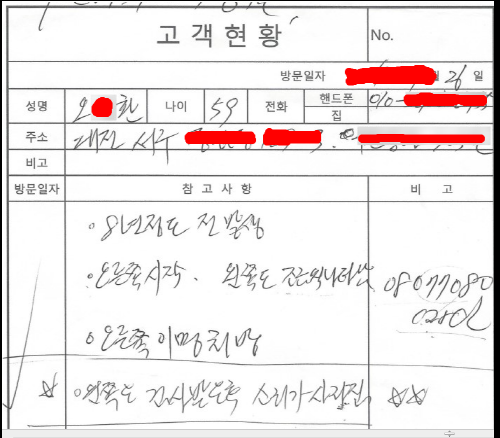 고객현황
No.
방문일자 26 일
성명 오 환 나이 59 전화 핸드폰 010-
집
주소 대전 서구
비고
방문일자 참고사항 비고
· 8년정도 전 발생
· 오른쪽 시작 · 왼쪽도 조금씩 나타남 08077080
· 오른쪽 이명처방
☆ · 왼쪽도 검사받도록 소리가 사라짐 ☆☆